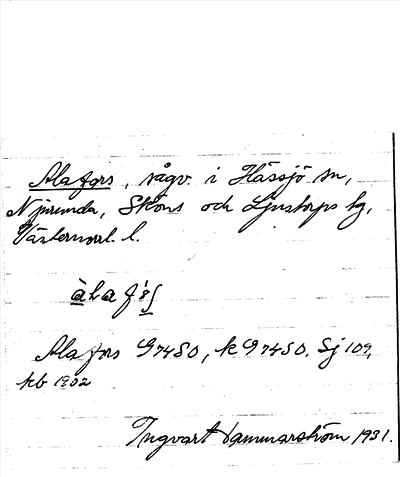 Alafors, sågv. i Hässjö sn,
Njurunda, Sköns och Ljustorps tg,
Västernorrl. l.
Alafors G 7450, k G 7450, Sj 109,
kb 1902
Ingvart Hammarström 1931.